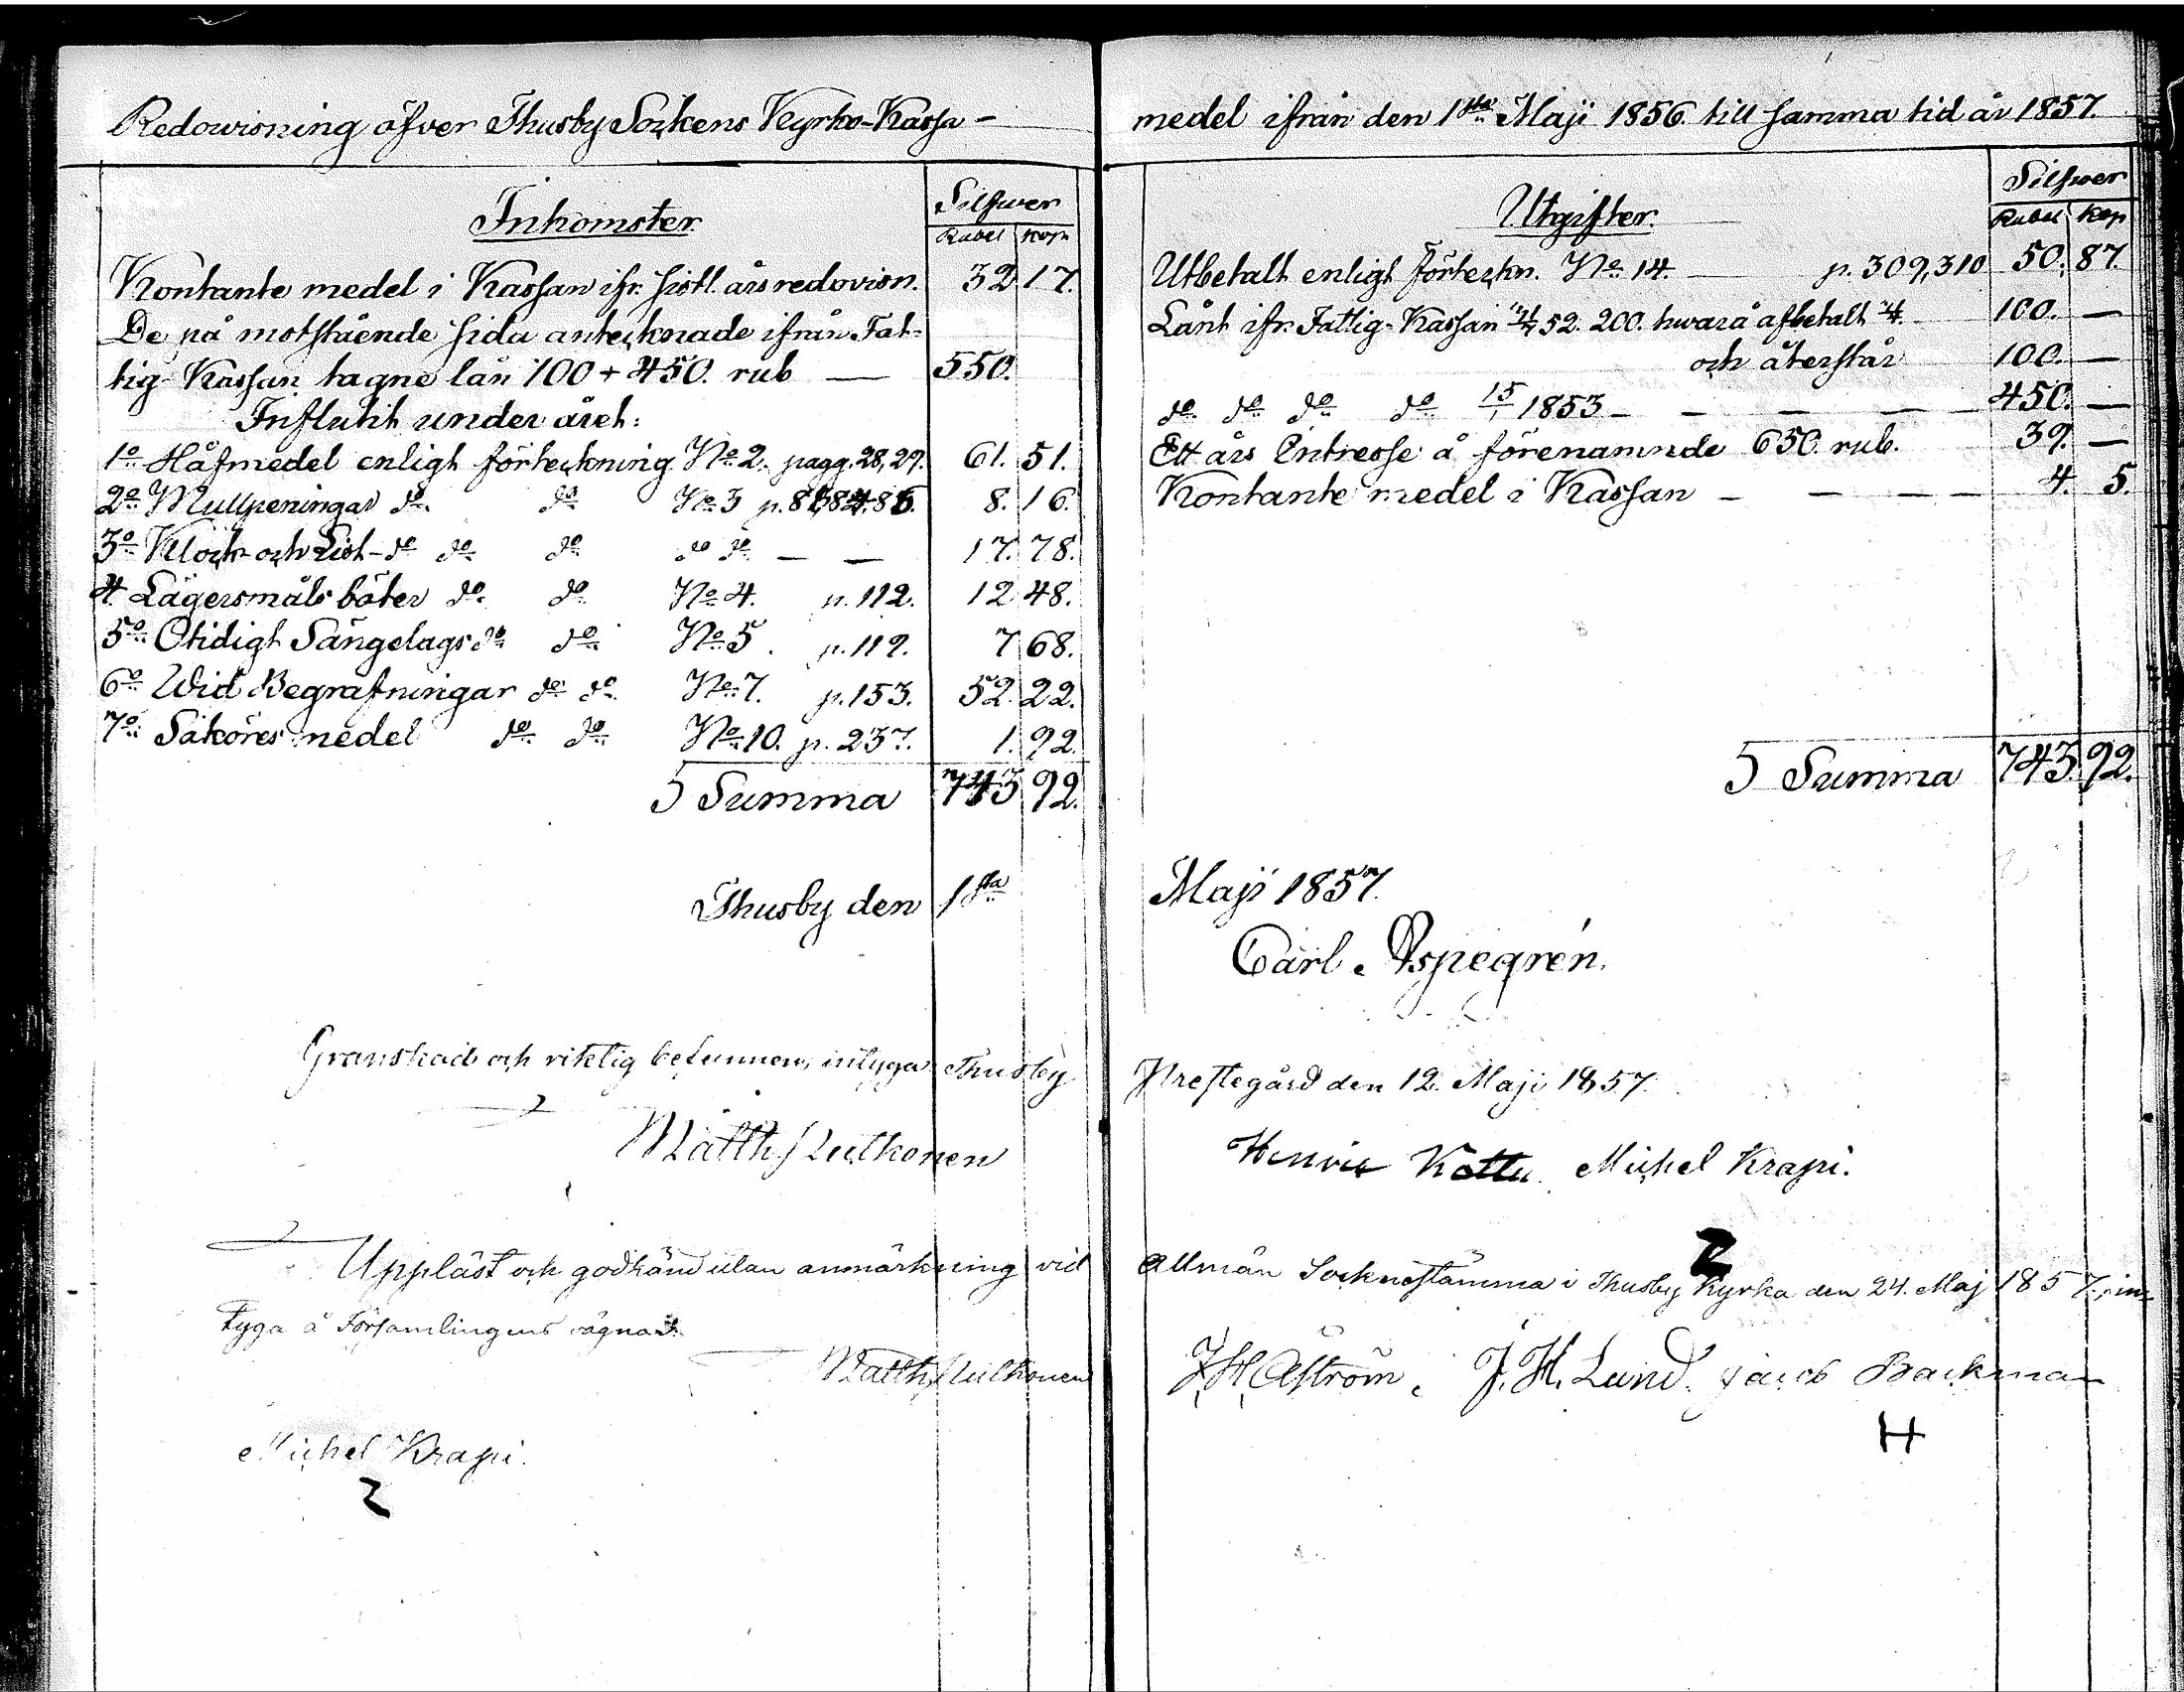 Redowisning öfver Thusby Sockens Kyrko-Kassa-
Inkomster
Silfwer
Rubel Kop
Kontante medel i Kassan ifr. sistl. års redovisn. 32 17.
De på motstående sida antecknade ifrån Fat-
tig-Kassan tagne lån 100 + 450. rub — 550.
Influtit under året:
1o Håfmedel enligt förteckning No 2. pagg. 28, 29. 61. 51.
2o Mullpeningar do. do No 3 8. 16.
3o Klock och List-do do do do do — — 17. 78.
4. Lägersmåls böter do. do No 4. p. 112. 12 48.
5o Otidigt Sängelags do do No 5. p. 119. 7 68.
6o Wid Begrafningar do do. No 7. p. 153. 52. 22.
7o Saköres medel do do No 10. p. 237. 1. 92.
Summa 743 92.
Thusby den 1sta
Granskad och riktig befunnen, intyga Thusby
Matth
Uppläst och godkänd utan anmärkning vid
tyga å Församlingens vägnar.
Matth
Michel Krapi.
medel ifrån den 1sta Maji 1856. till samma tid år 1857.
Utgifter.
Silfwer
Rubel Kop
Utbetalt enligt förteckn. No 14. — p. 309, 310 50. 87.
Lånt ifr. Fattig-Kassan 52. 200. hwarå afbetalt 100. —
och återstår 100. —
do do do do 15/1 1853 — — — — 450. —
Ett års Intresse å förenämnde 650. rub. 39. —
Kontante medel i Kassan — — — — 4. 5.
Summa 743. 92.
Maji 1857.
Carl Aspegrén.
Prestegård den 12. Maji 1857.
Henric Kottu. Michel Krapi.
Allmän Socknestämma i Thusby Kyrka den 24. Maj 1857, in-
J. H. Åström. J. H. Lund. Jacob Backman
H